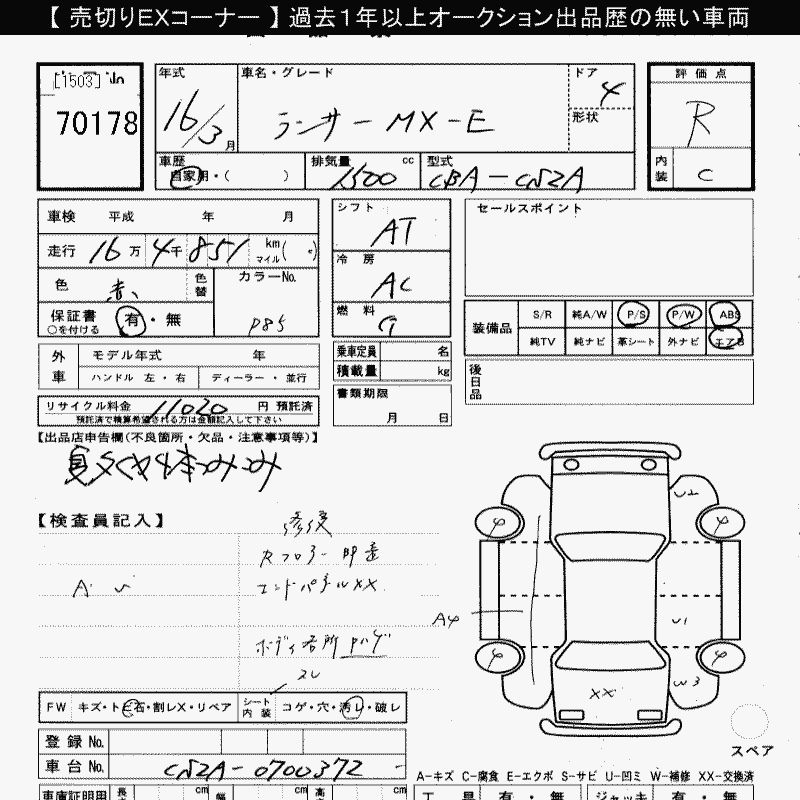 【 売切りEXコーナー 】 過去1年以上オークション出品歴の無い車両
[1503]
70178
年式 16/3 月
車名・グレード ランサー MX-E
ドア 4
形状
評価点 R
内装 C
車歴 自家用・( )
排気量 1500 cc
型式 CBA-CS2A
車検 平成 年 月
走行 16万 4千 851 km マイル( )
色 赤 色替
カラーNo. P85
保証書 有・無
○を付ける
シフト AT
冷房 AC
燃料 G
セールスポイント
装備品 S/R 純A/W P/S P/W ABS
純TV 純ナビ 革シート 外ナビ エアB
外車 モデル年式 年
ハンドル 左・右 ディーラー・並行
乗車定員 名
積載量 kg
後日品
リサイクル料金 11020 円 預託済
預託済で精算希望される方は金額記入して下さい
書類期限 月 日
【出品店申告欄(不良箇所・欠品・注意事項等)】
【検査員記入】
修復
Rフロアー
エンドパネルXX
ボディ各所
A
A4
U2
U1
W3
XX
FW キズ・トビ石・割レX・リペア シート内装 コゲ・穴・汚レ・破レ
スペア
登録No.
車台No. CS2A-0700372
A-キズ C-腐食 E-エクボ S-サビ U-凹ミ W-補修 XX-交換済
車庫証明用 長 cm 幅 cm 高 cm
工具 有・無 ジャッキ 有・無